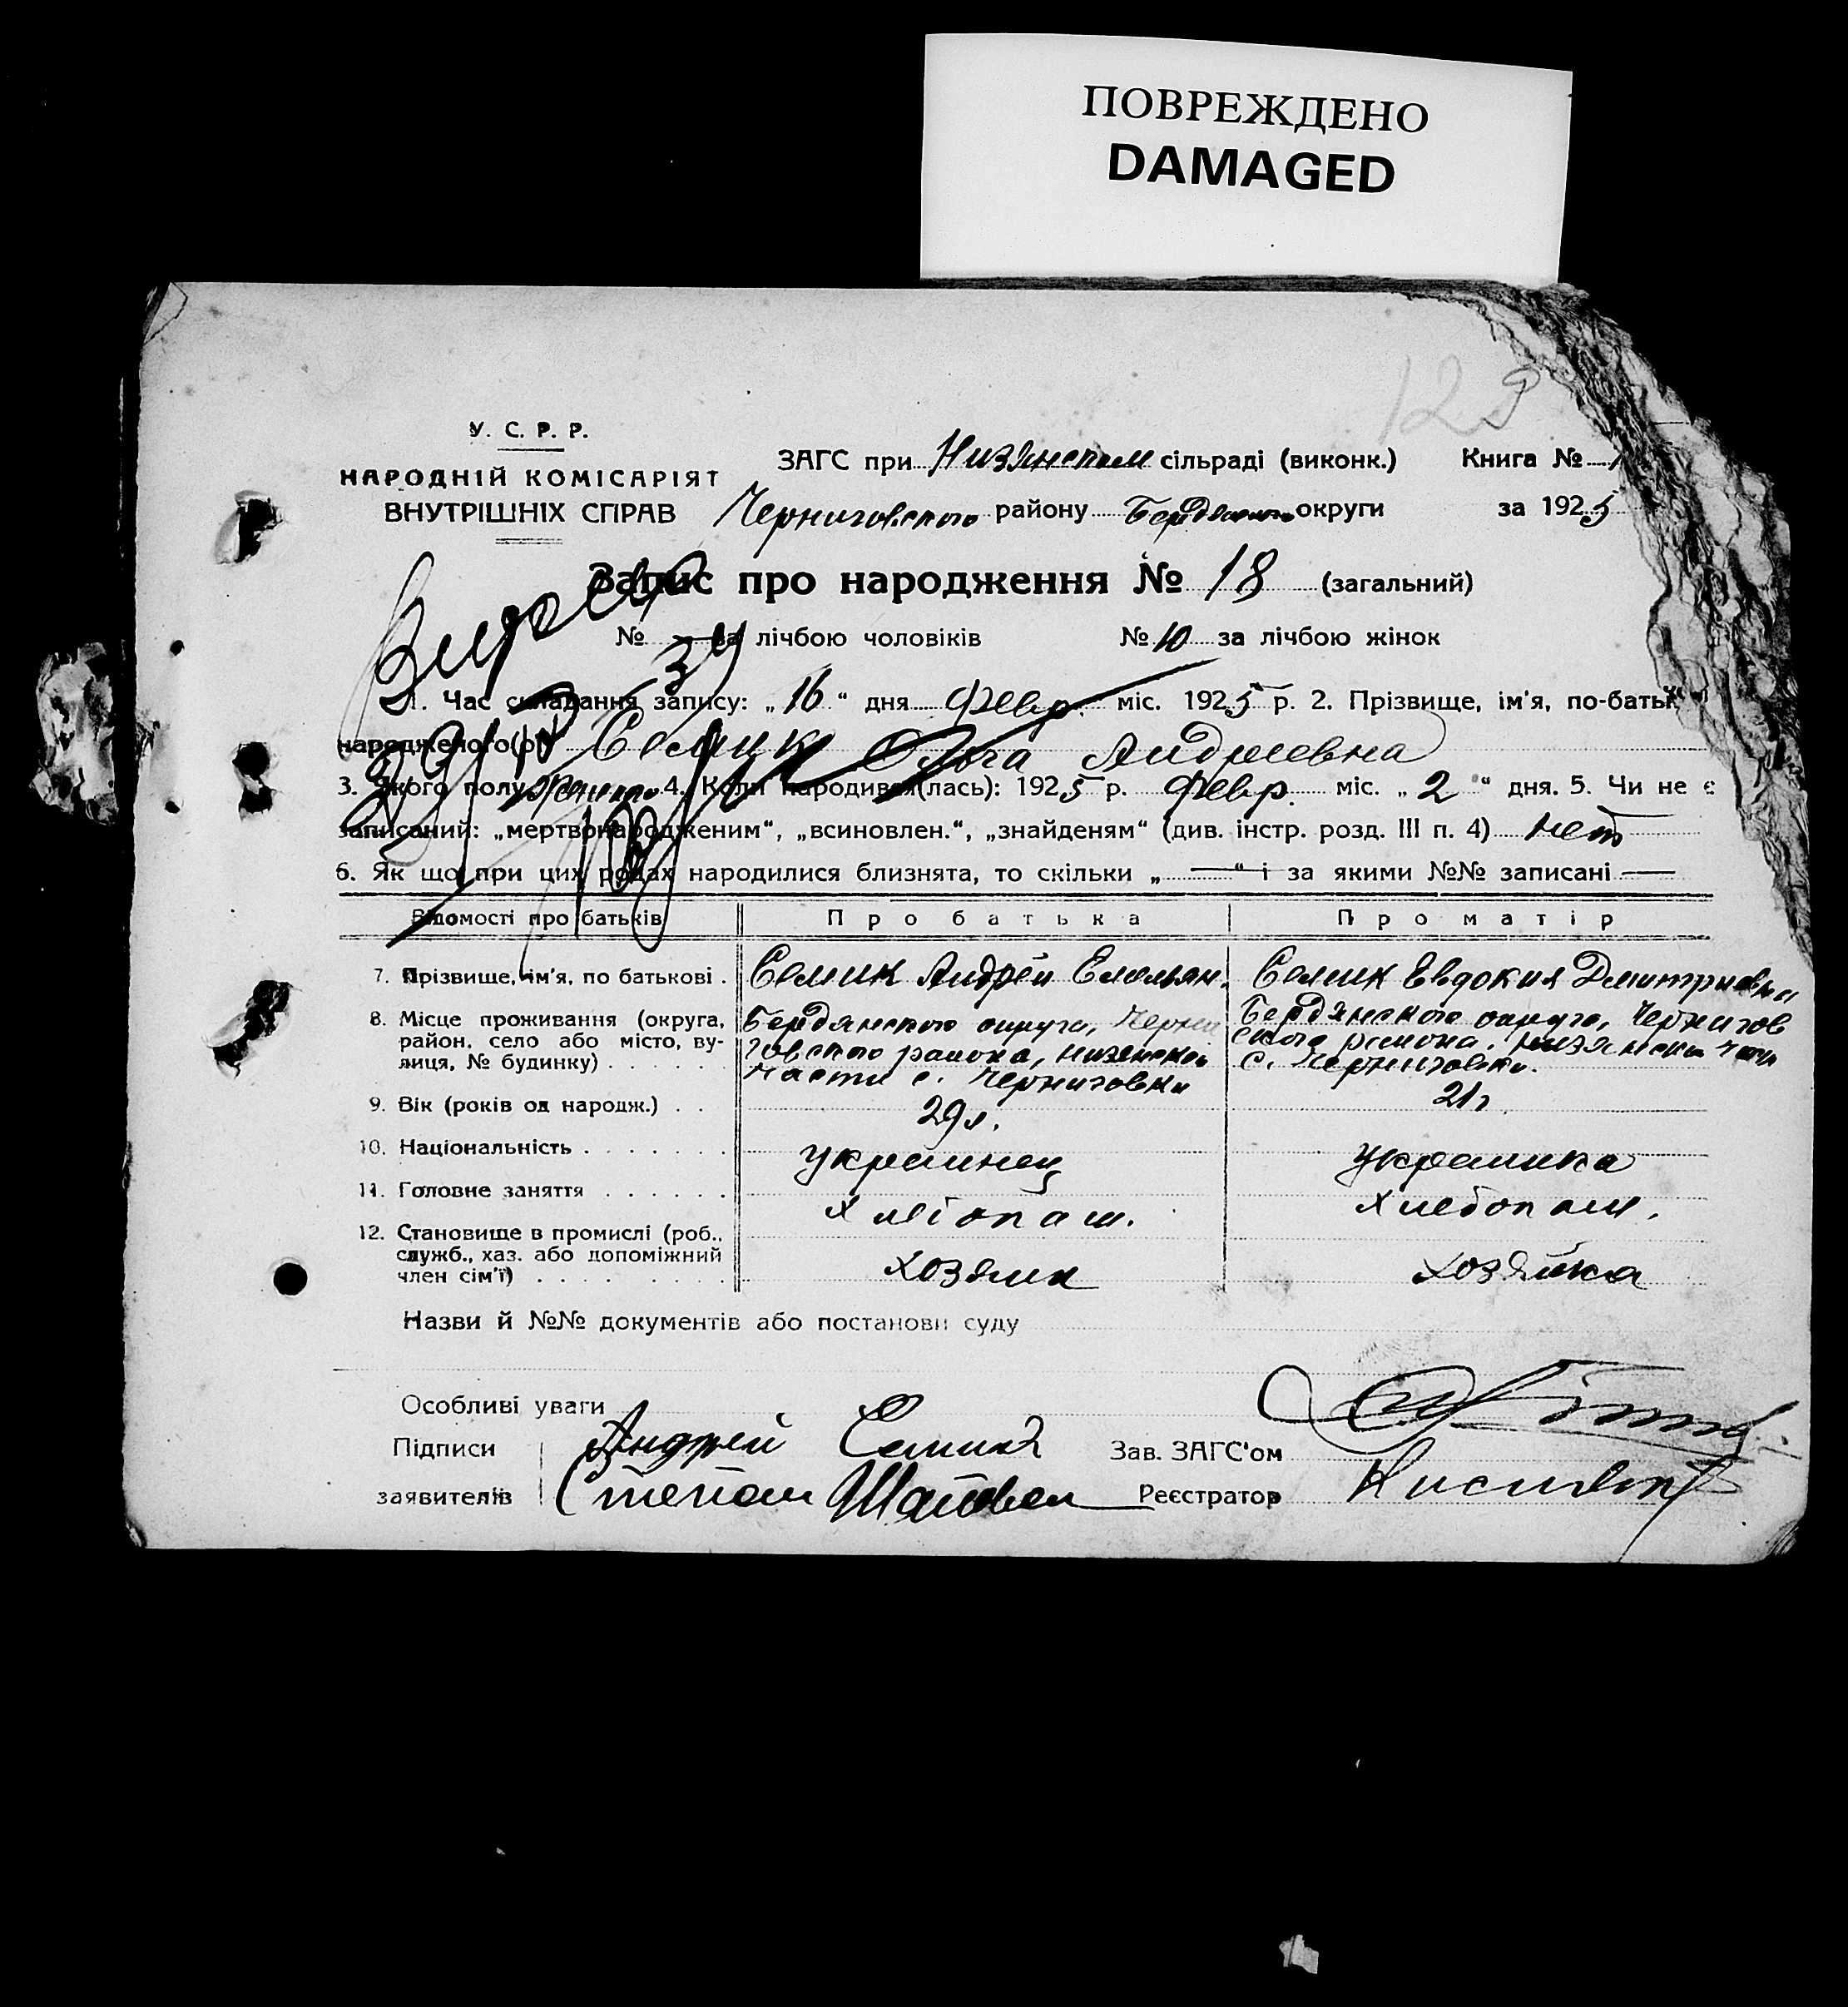 ПОВРЕЖДЕНО
DAMAGED
У. С. Р. Р.
НАРОДНІЙ КОМІСАРІЯТ
ВНУТРІШНІХ СПРАВ
ЗАГС при Низянском сільраді (виконк.) Книга №
Черниговского району Бердянского округи за 1925
Запис про народження № 18 (загальний)
№ — за лічбою чоловіків № 10 за лічбою жінок
1. Час складання запису: „16“ дня Февр. міс. 1925 р. 2. Прізвище, ім'я, по-батьк
народженого(ої) Семик Ольга Андреевна
3. Якого полу 4. Коли народився(лась): 1925 р. Февр. міс. „2“ дня. 5. Чи не є
записаний: „мертвонародженим“, „всиновлен.“, „знайденям“ (див. інстр. розд. III п. 4) нет
6. Як що при цих родах народилися близнята, то скільки „—“ і за якими №№ записані —
Відомості про батьків Про батька Про матір
7. Прізвище, ім'я, по батькові . Семик Андрей Емельян. Семик Евдокия Дмитриевна
8. Місце проживання (округа, район, село або місто, вулиця, № будинку) . . . . . .
Бердянского округа, Черни
говского района, низянской
части с. Черниговки
Бердянского округа, Чернигов
ского района, низянской части
с. Черниговки.
9. Вік (років од народж.) . . 29 л. 21 г.
10. Національність . . . . . . . украинец украинка
11. Головне заняття . . . . . . хлебопаш. хлебопаш.
12. Становище в промислі (роб., служб., хаз. або допоміжний член сім'ї) . . . . . . . . хозяин хозяйка
Назви й №№ документів або постанови суду
Особливі уваги
Підписи Андрей Семик Зав. ЗАГС'ом
заявителів Степан Реєстратор